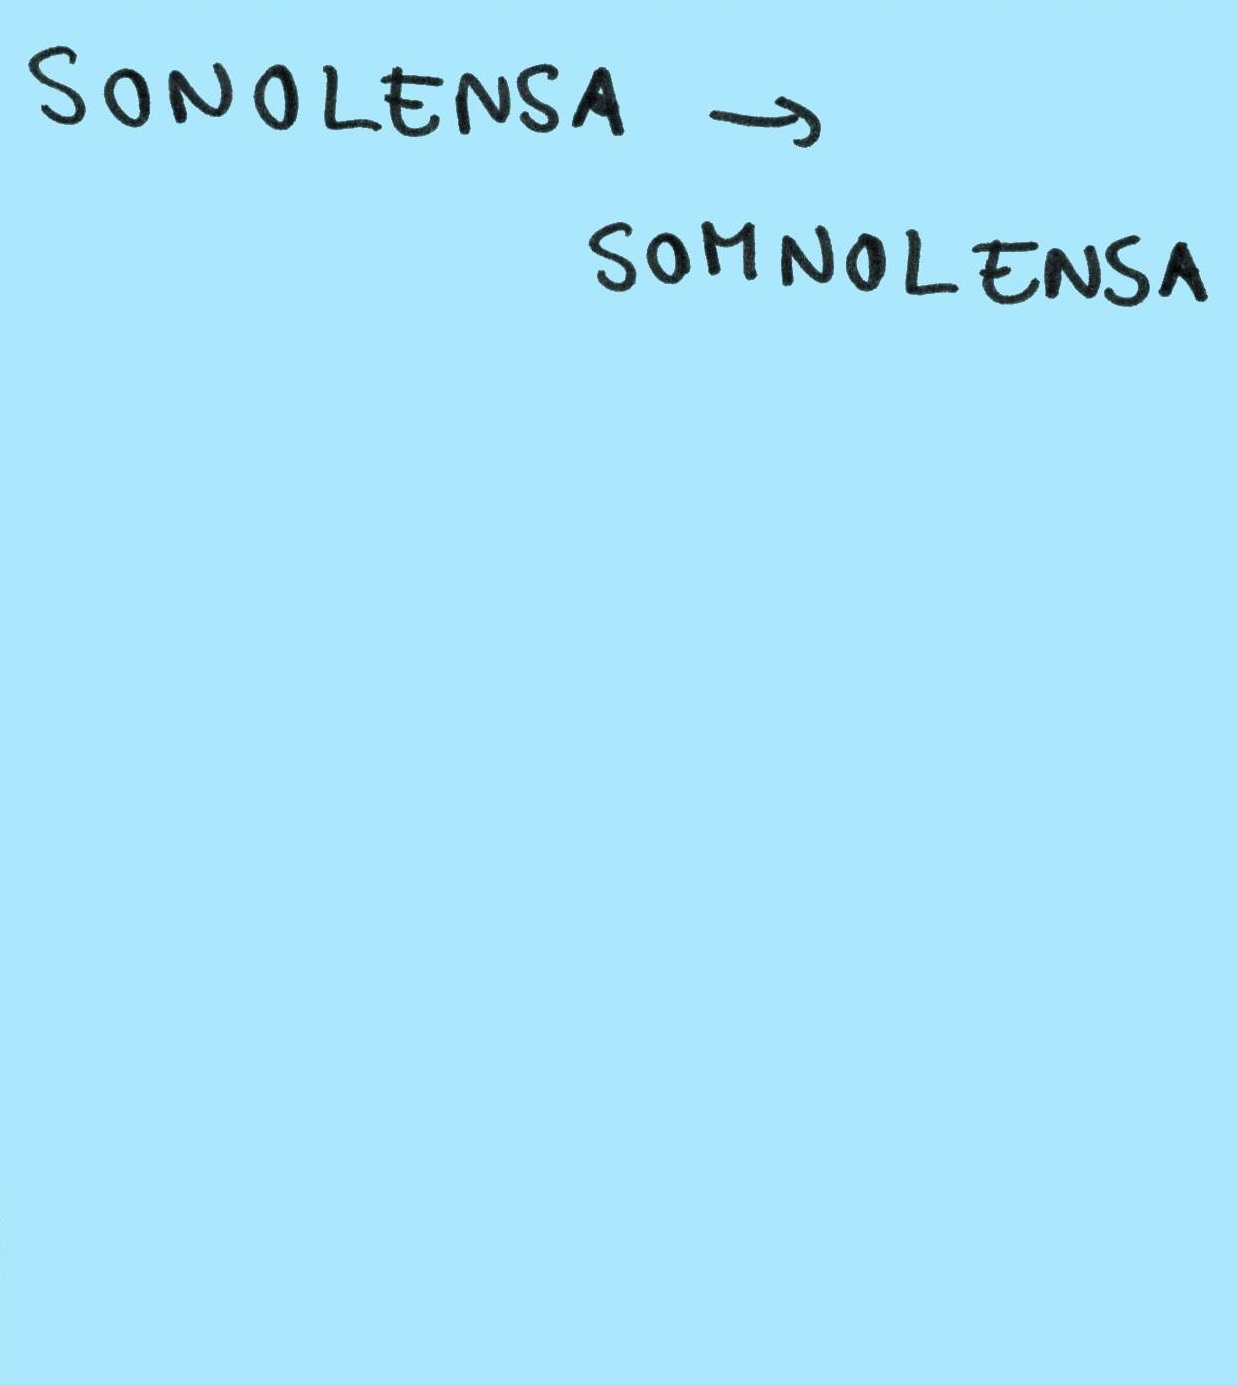 SONOLENSA →
SOMNOLENSA